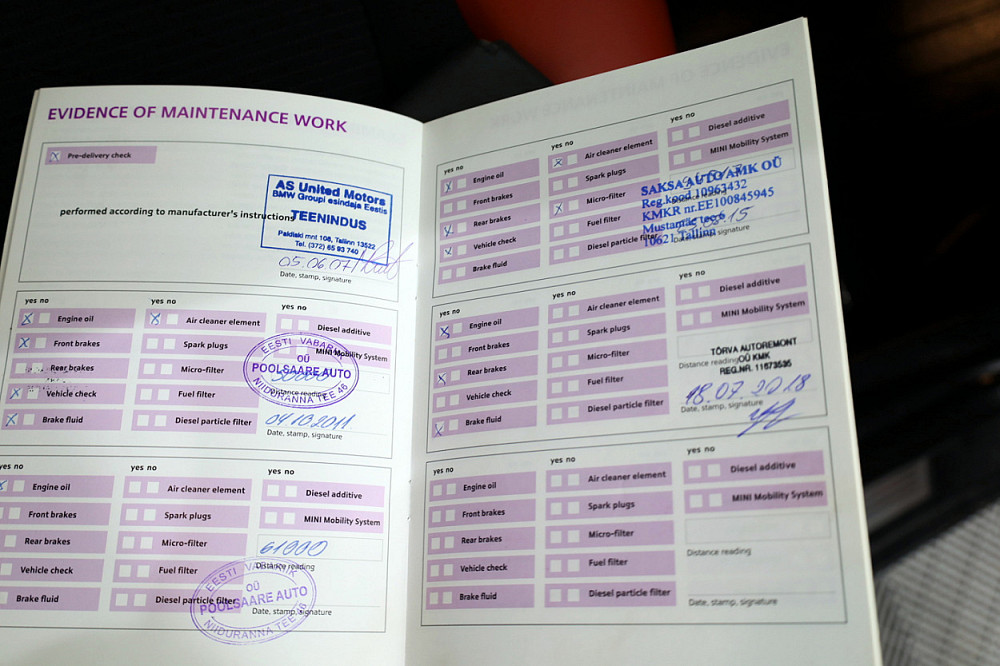 EVIDENCE OF MAINTENANCE WORK
Pre-delivery check
performed according to manufacturer's instructions
AS United Motors
BMW Groupi esindaja Eestis
TEENINDUS
Paldiski mnt 106, Tallinn 13522
Tel. (372) 65 93 740
05.06.07
Date, stamp, signature
yes no
yes no
yes no
Engine oil
Air cleaner element
Diesel additive
Front brakes
Spark plugs
MINI Mobility System
Rear brakes
Micro-filter
Vehicle check
Fuel filter
Distance reading
Brake fluid
Diesel particle filter
EESTI VABARIIK
OÜ
POOLSAARE AUTO
NIIDURANNA TEE 46
04.10.2011
Date, stamp, signature
yes no
yes no
yes no
Engine oil
Air cleaner element
Diesel additive
Front brakes
Spark plugs
MINI Mobility System
Rear brakes
Micro-filter
61000
Vehicle check
Fuel filter
Distance reading
Brake fluid
Diesel particle filter
EESTI VABARIIK
OÜ
POOLSAARE AUTO
NIIDURANNA TEE 46
Date, stamp, signature
yes no
yes no
yes no
Engine oil
Air cleaner element
Diesel additive
Front brakes
Spark plugs
MINI Mobility System
Rear brakes
Micro-filter
Vehicle check
Fuel filter
Distance reading
Brake fluid
Diesel particle filter
SAKSA AUTO AMK OÜ
Reg.kood 10963432
KMKR nr.EE100845945
Mustamäe tee 6
10621 Tallinn
Date, stamp, signature
yes no
yes no
yes no
Engine oil
Air cleaner element
Diesel additive
Front brakes
Spark plugs
MINI Mobility System
Rear brakes
Micro-filter
Vehicle check
Fuel filter
Distance reading
Brake fluid
Diesel particle filter
TÕRVA AUTOREMONT
OÜ KMK
REG.NR. 11673595
18.07.2018
Date, stamp, signature
yes no
yes no
yes no
Engine oil
Air cleaner element
Diesel additive
Front brakes
Spark plugs
MINI Mobility System
Rear brakes
Micro-filter
Vehicle check
Fuel filter
Distance reading
Brake fluid
Diesel particle filter
Date, stamp, signature